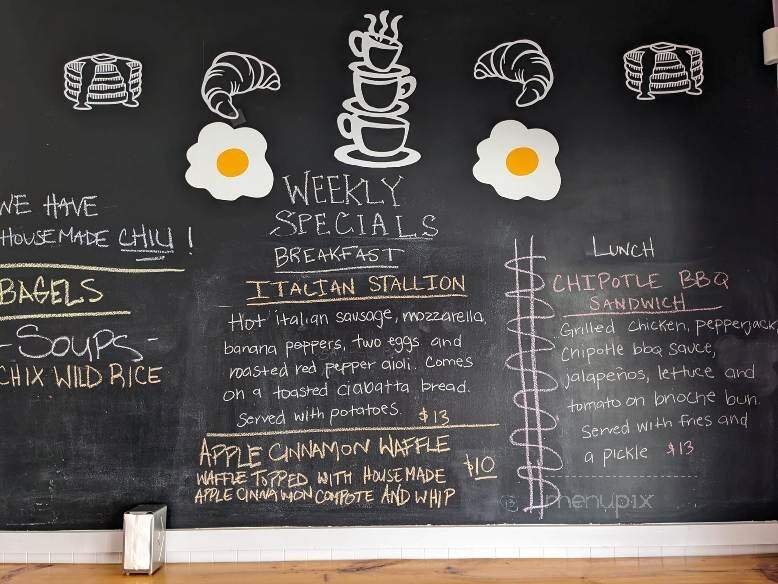 WE HAVE
HOUSEMADE CHILI !
BAGELS
-SOUPS-
CHIX WILD RICE
WEEKLY
SPECIALS
BREAKFAST
ITALIAN STALLION
Hot italian sausage, mozzarella,
banana peppers, two eggs and
roasted red pepper aioli. Comes
on a toasted ciabatta bread.
Served with potatoes. $13
APPLE CINNAMON WAFFLE
WAFFLE TOPPED WITH HOUSEMADE
APPLE CINNAMON COMPOTE AND WHIP
$10
LUNCH
CHIPOTLE BBQ
SANDWICH
Grilled chicken, pepperjack,
Chipotle bbq sauce,
jalapeños, lettuce and
tomato on brioche bun.
Served with fries and
a pickle $13
menupix